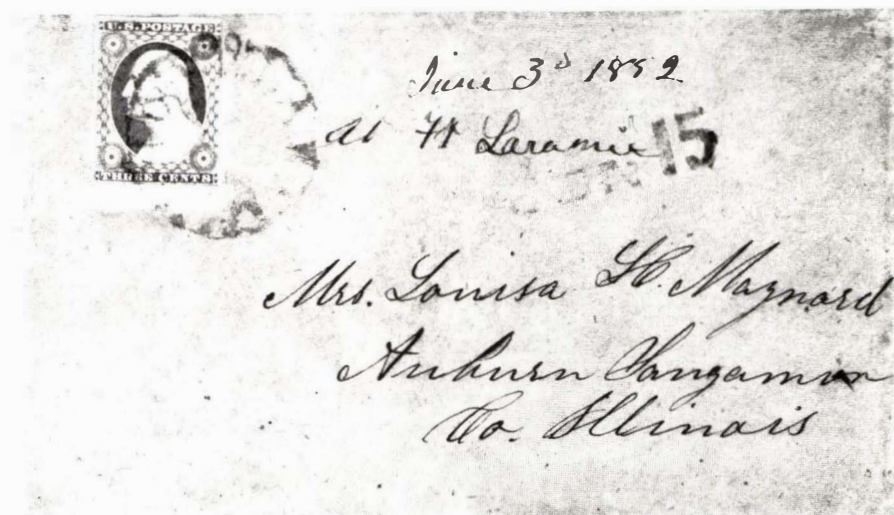 U.S. POSTAGE
THREE CENTS
June 3d 1852
at Ft Laramie 15
Mrs. Louisa H. Maynard
Auburn Sangamon
Co. Illinois